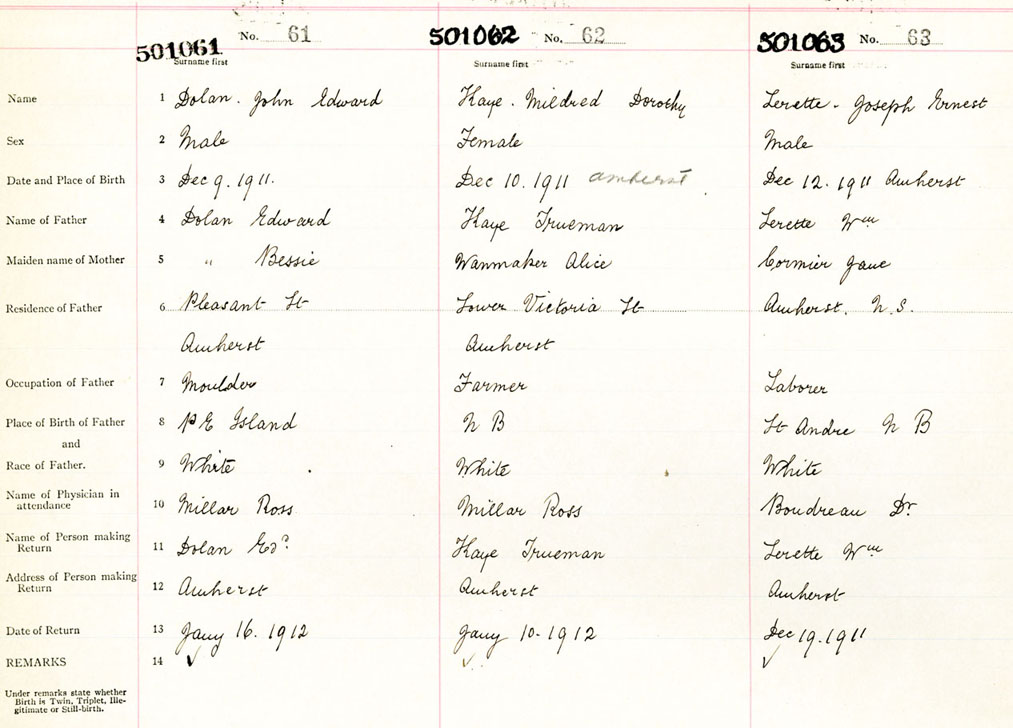 501061 No. 61 501062 No. 62 501063 No. 63
Surname first Surname first Surname first
Name 1 Dolan. John Edward Kaye. Mildred Dorothy Lerette. Joseph Ernest
Sex 2 Male Female Male
Date and Place of Birth 3 Dec 9. 1911. Dec 10. 1911 amherst Dec 12. 1911 Amherst
Name of Father 4 Dolan Edward Kaye Trueman Lerette Wm
Maiden name of Mother 5 " Bessie Wanmaker Alice Cormier Jane
Residence of Father 6 Pleasant St Lower Victoria St Amherst. N.S.
Amherst Amherst
Occupation of Father 7 Moulder Farmer Laborer
Place of Birth of Father 8 P E Island N B St Andre N B
and
Race of Father. 9 White White White
Name of Physician in
attendance 10 Millar Ross Millar Ross Boudreau Dr
Name of Person making
Return 11 Dolan Edd Kaye Trueman Lerette Wm
Address of Person making
Return 12 Amherst Amherst Amherst
Date of Return 13 Jany 16. 1912 Jany 10. 1912 Dec 19. 1911
REMARKS 14 ✓ ✓ ✓
Under remarks state whether
Birth is Twin, Triplet, Ille-
gitimate or Still-birth.